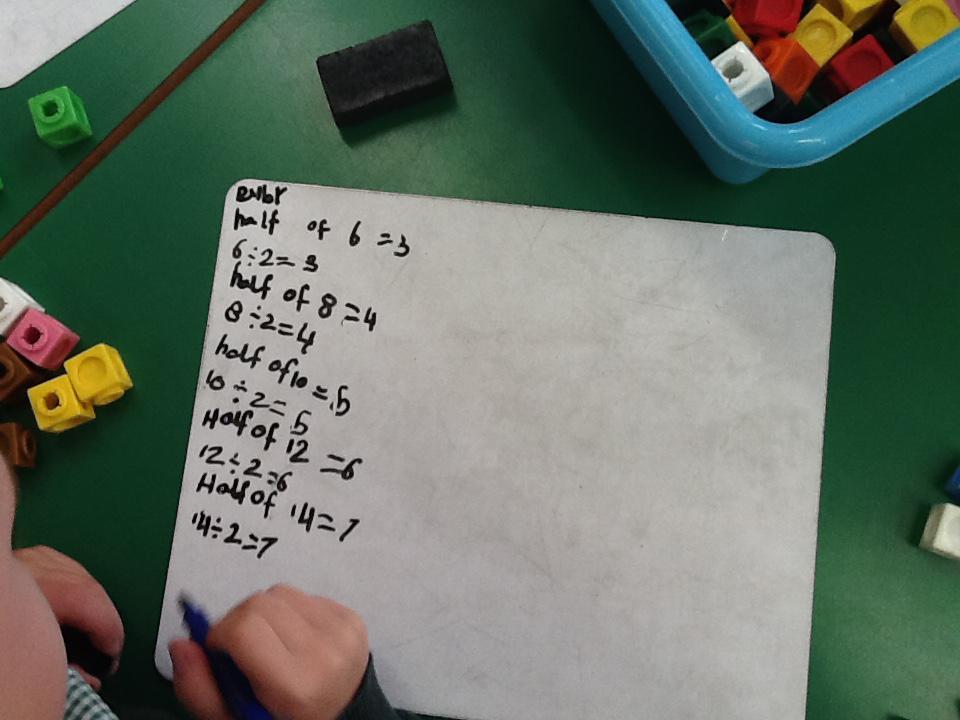 half of 6 =3
6÷2=3
half of 8 =4
8÷2=4
half of 10 =5
10÷2=5
Half of 12 =6
12÷2=6
Half of 14=7
14÷2=7